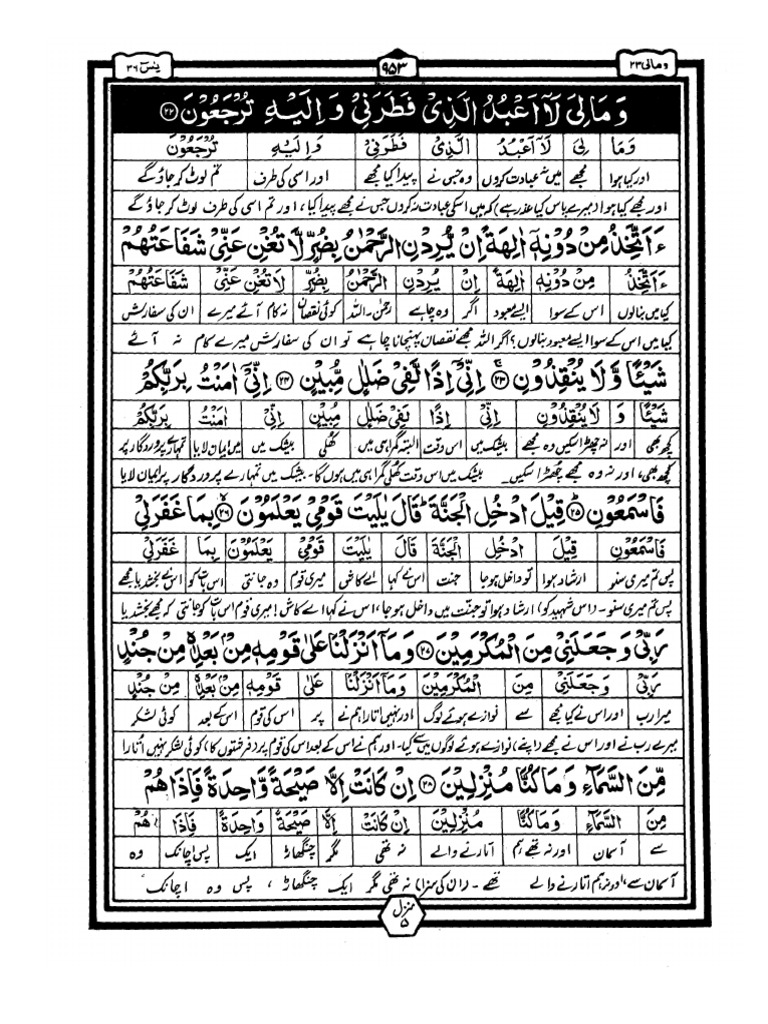 ومالی ۲۳
۹۵۳
یٰسٓ ۳۶
وَمَا لِيَ لَآ اَعْبُدُ الَّذِيْ فَطَرَنِيْ وَاِلَيْهِ تُرْجَعُوْنَ ﴿۲۲﴾
وَمَا لِيَ لَآ اَعْبُدُ الَّذِيْ فَطَرَنِيْ وَاِلَيْهِ تُرْجَعُوْنَ
اور کیا ہوا مجھے میں نہ عبادت کروں وہ جس نے پیدا کیا مجھے اور اسی کی طرف تم لوٹ کر جاؤ گے
اور مجھے کیا ہوا (میرے پاس کیا عذر ہے) کہ میں اسکی عبادت نہ کروں جس نے مجھے پیدا کیا، اور تم اسی کی طرف لوٹ کر جاؤ گے
ءَاَتَّخِذُ مِنْ دُوْنِهٖٓ اٰلِهَةً اِنْ يُّرِدْنِ الرَّحْمٰنُ بِضُرٍّ لَّا تُغْنِ عَنِّيْ شَفَاعَتُهُمْ
ءَاَتَّخِذُ مِنْ دُوْنِهٖٓ اٰلِهَةً اِنْ يُّرِدْنِ الرَّحْمٰنُ بِضُرٍّ لَّا تُغْنِ عَنِّيْ شَفَاعَتُهُمْ
کیا میں بنالوں اس کے سوا ایسے معبود اگر وہ چاہے رحمٰن۔اللہ کوئی نقصان نہ کام آئے میرے ان کی سفارش
کیا میں اس کے سوا ایسے معبود بنالوں؟ اگر اللہ مجھے نقصان پہنچانا چاہے تو ان کی سفارش میرے کام نہ آئے
شَيْـًٔا وَّلَا يُنْقِذُوْنِ ﴿۲۳﴾ اِنِّيْٓ اِذًا لَّفِيْ ضَلٰلٍ مُّبِيْنٍ ﴿۲۴﴾ اِنِّيْٓ اٰمَنْتُ بِرَبِّكُمْ
شَيْـًٔا وَّ لَا يُنْقِذُوْنِ اِنِّيْٓ اِذًا لَّفِيْ ضَلٰلٍ مُّبِيْنٍ اِنِّيْٓ اٰمَنْتُ بِرَبِّكُمْ
کچھ بھی اور نہ چھڑا سکیں وہ مجھے بیشک میں اس وقت البتہ گمراہی میں کھلی بیشک میں میں ایمان لایا تمہارے پروردگار پر
کچھ بھی، اور نہ وہ مجھے چھڑا سکیں۔ بیشک میں اس وقت کھلی گمراہی میں ہوں گا۔ بیشک میں تمہارے پروردگار پر ایمان لایا
فَاسْمَعُوْنِ ﴿۲۵﴾ قِيْلَ ادْخُلِ الْجَنَّةَ ؕ قَالَ يٰلَيْتَ قَوْمِيْ يَعْلَمُوْنَ ﴿۲۶﴾ بِمَا غَفَرَلِيْ
فَاسْمَعُوْنِ قِيْلَ ادْخُلِ الْجَنَّةَ قَالَ يٰلَيْتَ قَوْمِيْ يَعْلَمُوْنَ بِمَا غَفَرَلِيْ
پس تم میری سنو ارشاد ہوا تو داخل ہوجا جنت اس نے کہا اے کاش میری قوم وہ جانتی اس بات کو اس نے بخشدیا مجھے
پس تم میری سنو۔ (اس شہید کو) ارشاد ہوا تو جنت میں داخل ہوجا، اس نے کہا اے کاش! میری قوم اس بات کو جانتی کہ مجھے بخشدیا
رَبِّيْ وَجَعَلَنِيْ مِنَ الْمُكْرَمِيْنَ ﴿۲۷﴾ وَمَآ اَنْزَلْنَا عَلٰى قَوْمِهٖ مِنْۢ بَعْدِهٖ مِنْ جُنْدٍ
رَبِّيْ وَجَعَلَنِيْ مِنَ الْمُكْرَمِيْنَ وَمَآ اَنْزَلْنَا عَلٰى قَوْمِهٖ مِنْۢ بَعْدِهٖ مِنْ جُنْدٍ
میرا رب اور اس نے کیا مجھے سے نوازے ہوئے لوگ اور نہیں اتارا ہم نے پر اس کی قوم اس کے بعد کوئی لشکر
میرے رب نے اور اس نے مجھے (اپنے) نوازے ہوئے لوگوں میں سے کیا۔ اور ہم نے اس کے بعد اس کی قوم پر (فرشتوں کا) کوئی لشکر نہیں اتارا
مِّنَ السَّمَآءِ وَمَا كُنَّا مُنْزِلِيْنَ ﴿۲۸﴾ اِنْ كَانَتْ اِلَّا صَيْحَةً وَّاحِدَةً فَاِذَا هُمْ
مِنَ السَّمَآءِ وَمَا كُنَّا مُنْزِلِيْنَ اِنْ كَانَتْ اِلَّا صَيْحَةً وَّاحِدَةً فَاِذَا هُمْ
سے آسمان اور نہ تھے ہم اتارنے والے نہ تھی مگر چنگھاڑ ایک پس اچانک وہ
آسمان سے، اور نہ ہم اتارنے والے تھے۔ (ان کی سزا) نہ تھی مگر ایک چنگھاڑ، پس وہ اچانک
منزل
۵